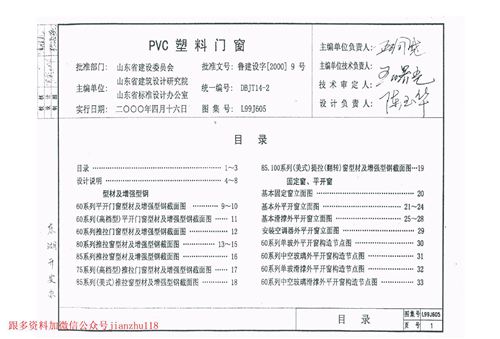 PVC 塑料门窗
批准部门: 山东省建设委员会
批准文号: 鲁建设字[2000] 9 号
主编单位: 山东省建筑设计研究院
山东省标准设计办公室
统一编号: DBJT14-2
实行日期: 二〇〇〇年四月十六日
图集号: L99J605
主编单位负责人:
主编单位技术负责人:
技术审定人:
设计负责人:
目录
目录 1~3
设计说明 4~8
型材及增强型钢
60系列平开门窗型材及增强型钢截面图 9~10
60系列(高档型)平开门窗型材及增强型钢截面图 11
60系列推拉门窗型材及增强型钢截面图 12
80系列推拉门窗型材及增强型钢截面图 13~15
85系列推拉窗型材及增强型钢截面图 16
75系列(高档型)推拉门窗型材及增强型钢截面图 17
85系列(美式)推拉窗型材及增强型钢截面图 18
85.100系列(美式)提拉(翻转)窗型材及增强型钢截面图 19
固定窗、平开窗
基本固定窗立面图 20
基本外平开窗立面图 21~24
基本滑撑外平开窗立面图 25~28
安装空调器外平开窗立面图 29
60系列单玻外平开窗构造节点图 30
60系列中空玻璃外平开窗构造节点图 31
60系列单玻滑撑外平开窗构造节点图 32
60系列中空玻璃滑撑外平开窗构造节点图 33
目录
图集号 L99J605
页号 1
跟多资料加微信公众号jianzhu118